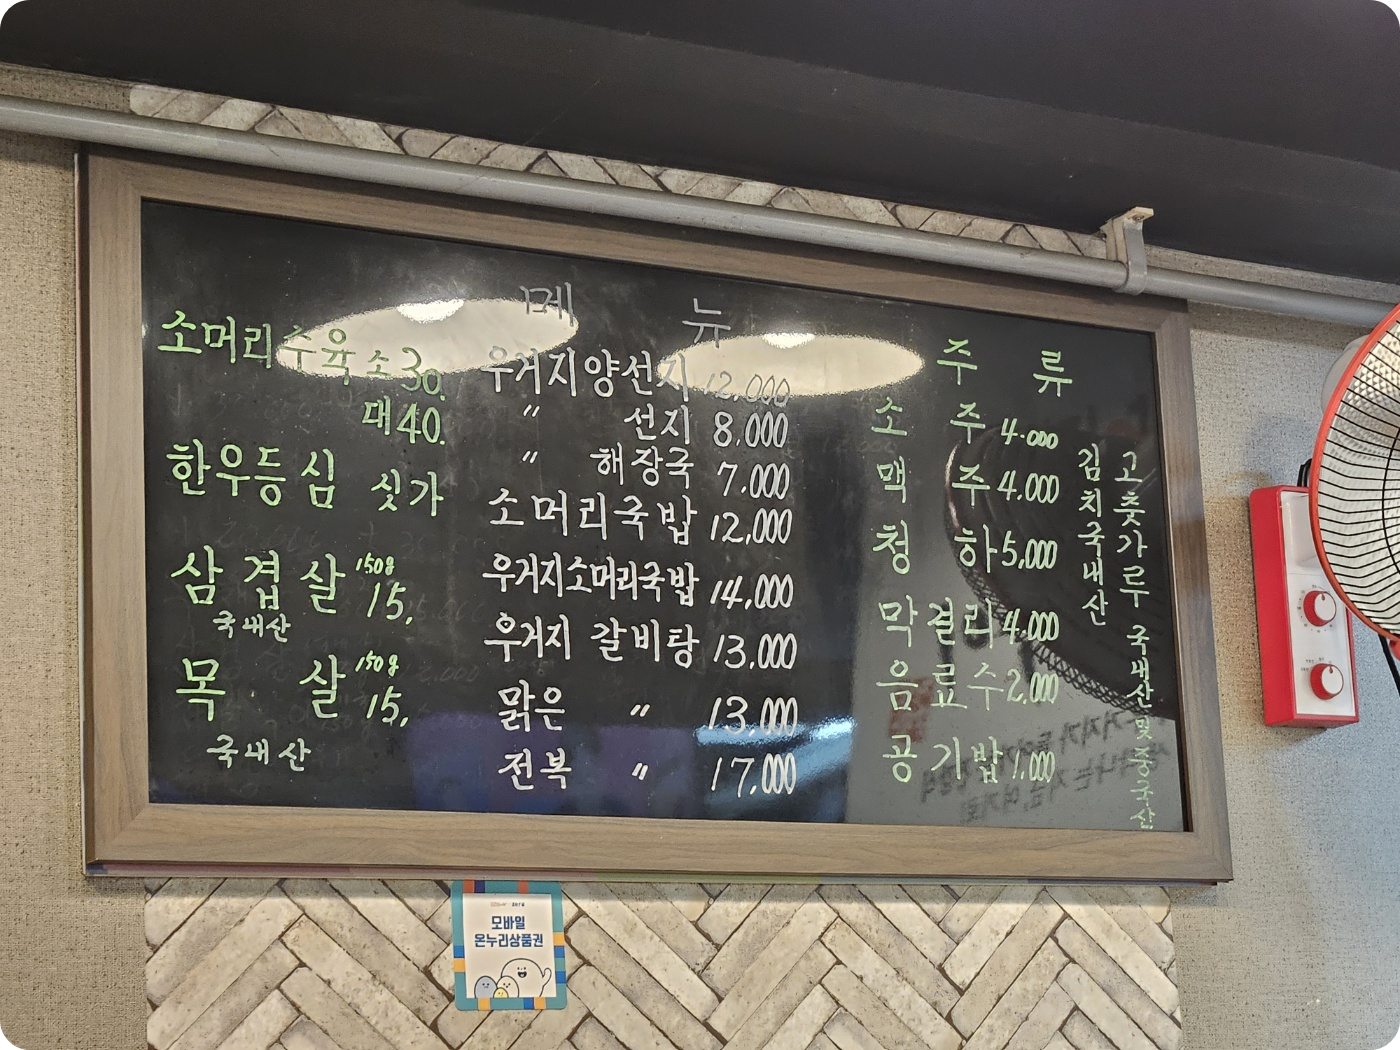 메 뉴
소머리수육 소 30.
대 40.
한우등심 싯가
삼겹살 150g 15.
국내산
목 살 150g 15.
국내산
우거지양선지 12,000
〃 선지 8,000
〃 해장국 7,000
소머리국밥 12,000
우거지소머리국밥 14,000
우거지 갈비탕 13,000
맑은 〃 13,000
전복 〃 17,000
주 류
소 주 4.000
맥 주 4.000
청 하 5,000
막걸리 4.000
음료수 2,000
공기밥 1,000
김치국내산
고춧가루 국내산 및 중국산
모바일
온누리상품권